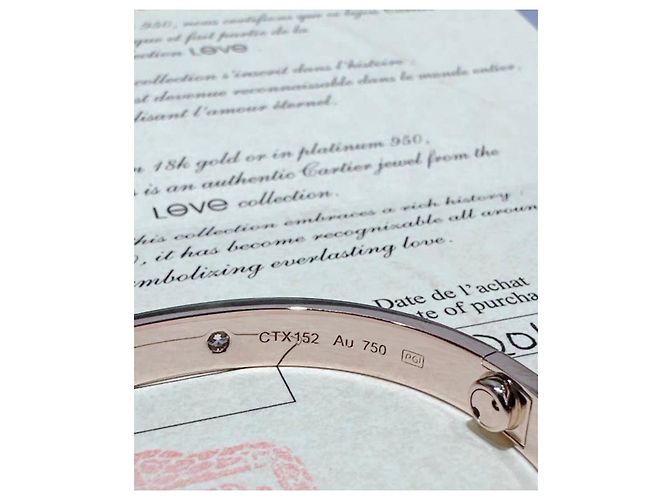 950, nous certifions que ce bijou
que et fait partie de la
ction LOVE
collection s'inscrit dans l'histoire :
st devenue reconnaissable dans le monde entier,
lisant l'amour éternel.
n 18k gold or in platinum 950,
is an authentic Cartier jewel from the
LOVE collection.
his collection embraces a rich history :
0, it has become recognizable all aroun
mbolizing everlasting love.
Date de l'achat
ate of purcha
201
CTX152 Au 750 PGI